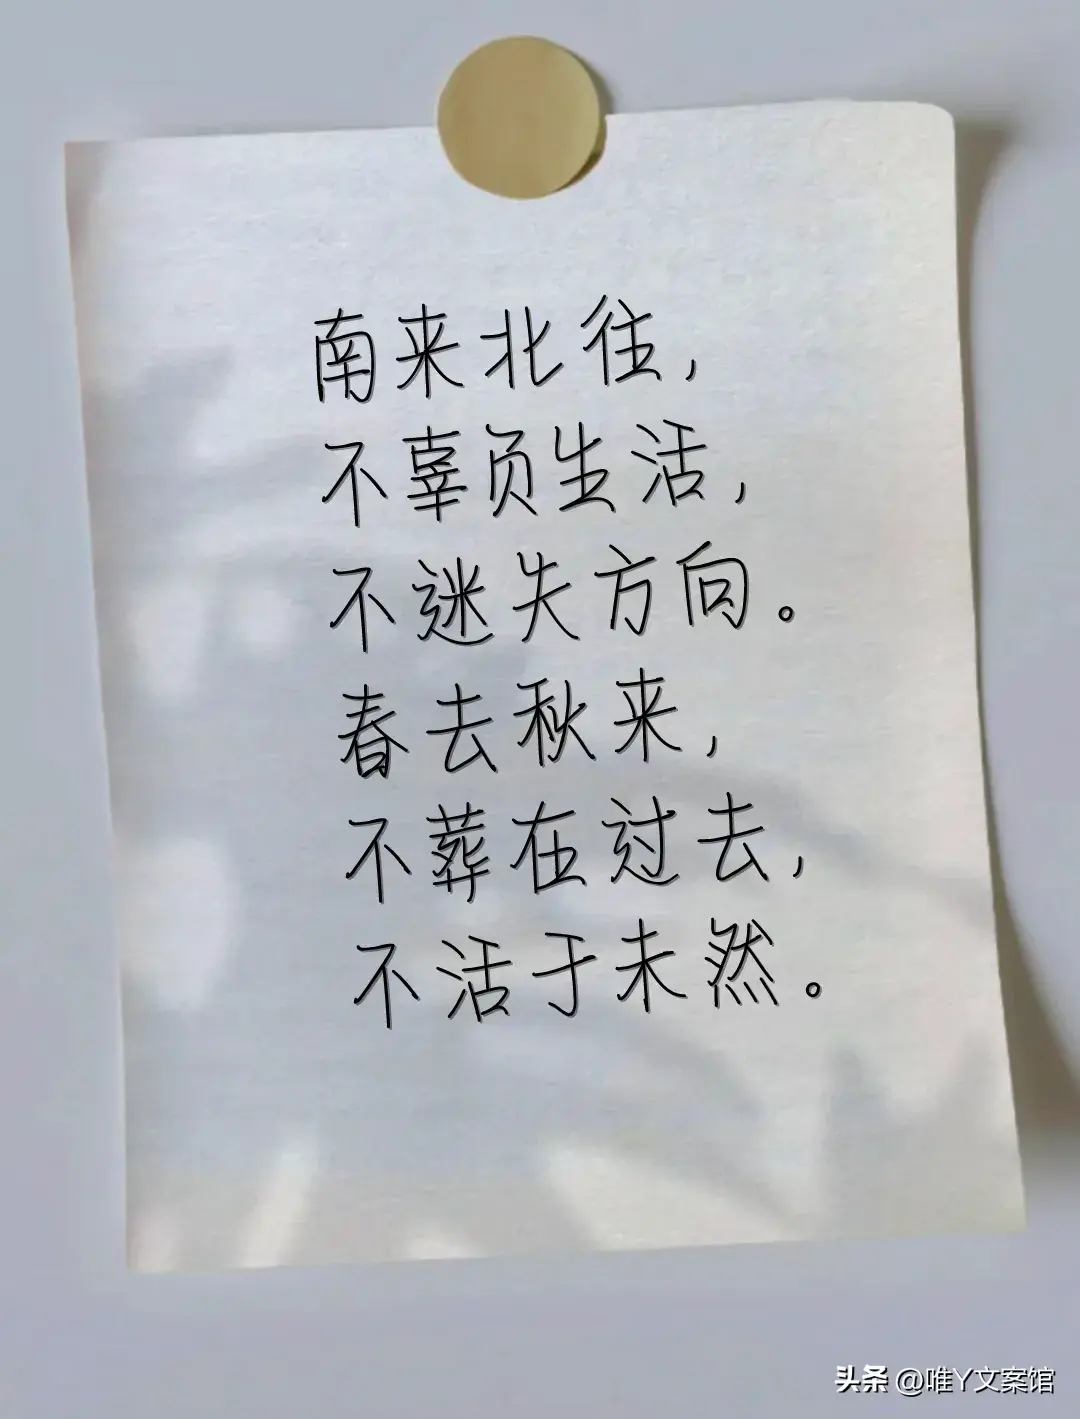 南来北往，
不辜负生活，
不迷失方向。
春去秋来，
不葬在过去，
不活于未然。
头条 @唯Y文案馆